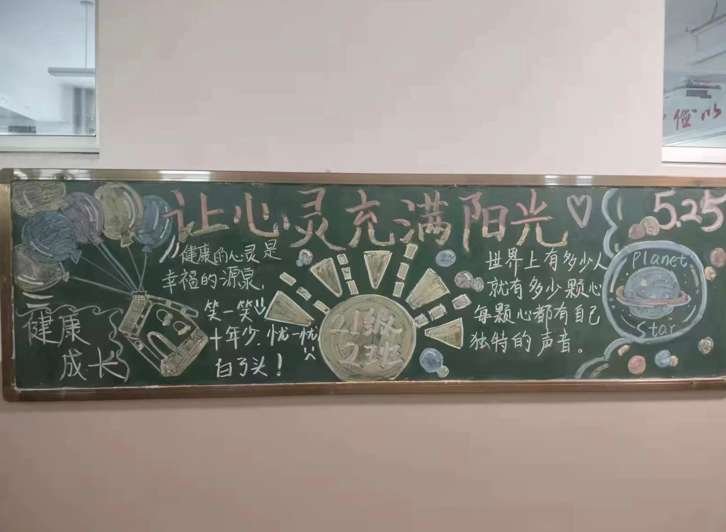 让心灵充满阳光
5.25
健康的心灵是
幸福的源泉
笑一笑
十年少. 忧一忧
白了头!
健康
成长
21级
2班
世界上有多少人
就有多少颗心
每颗心都有自己
独特的声音。
Planet
Star